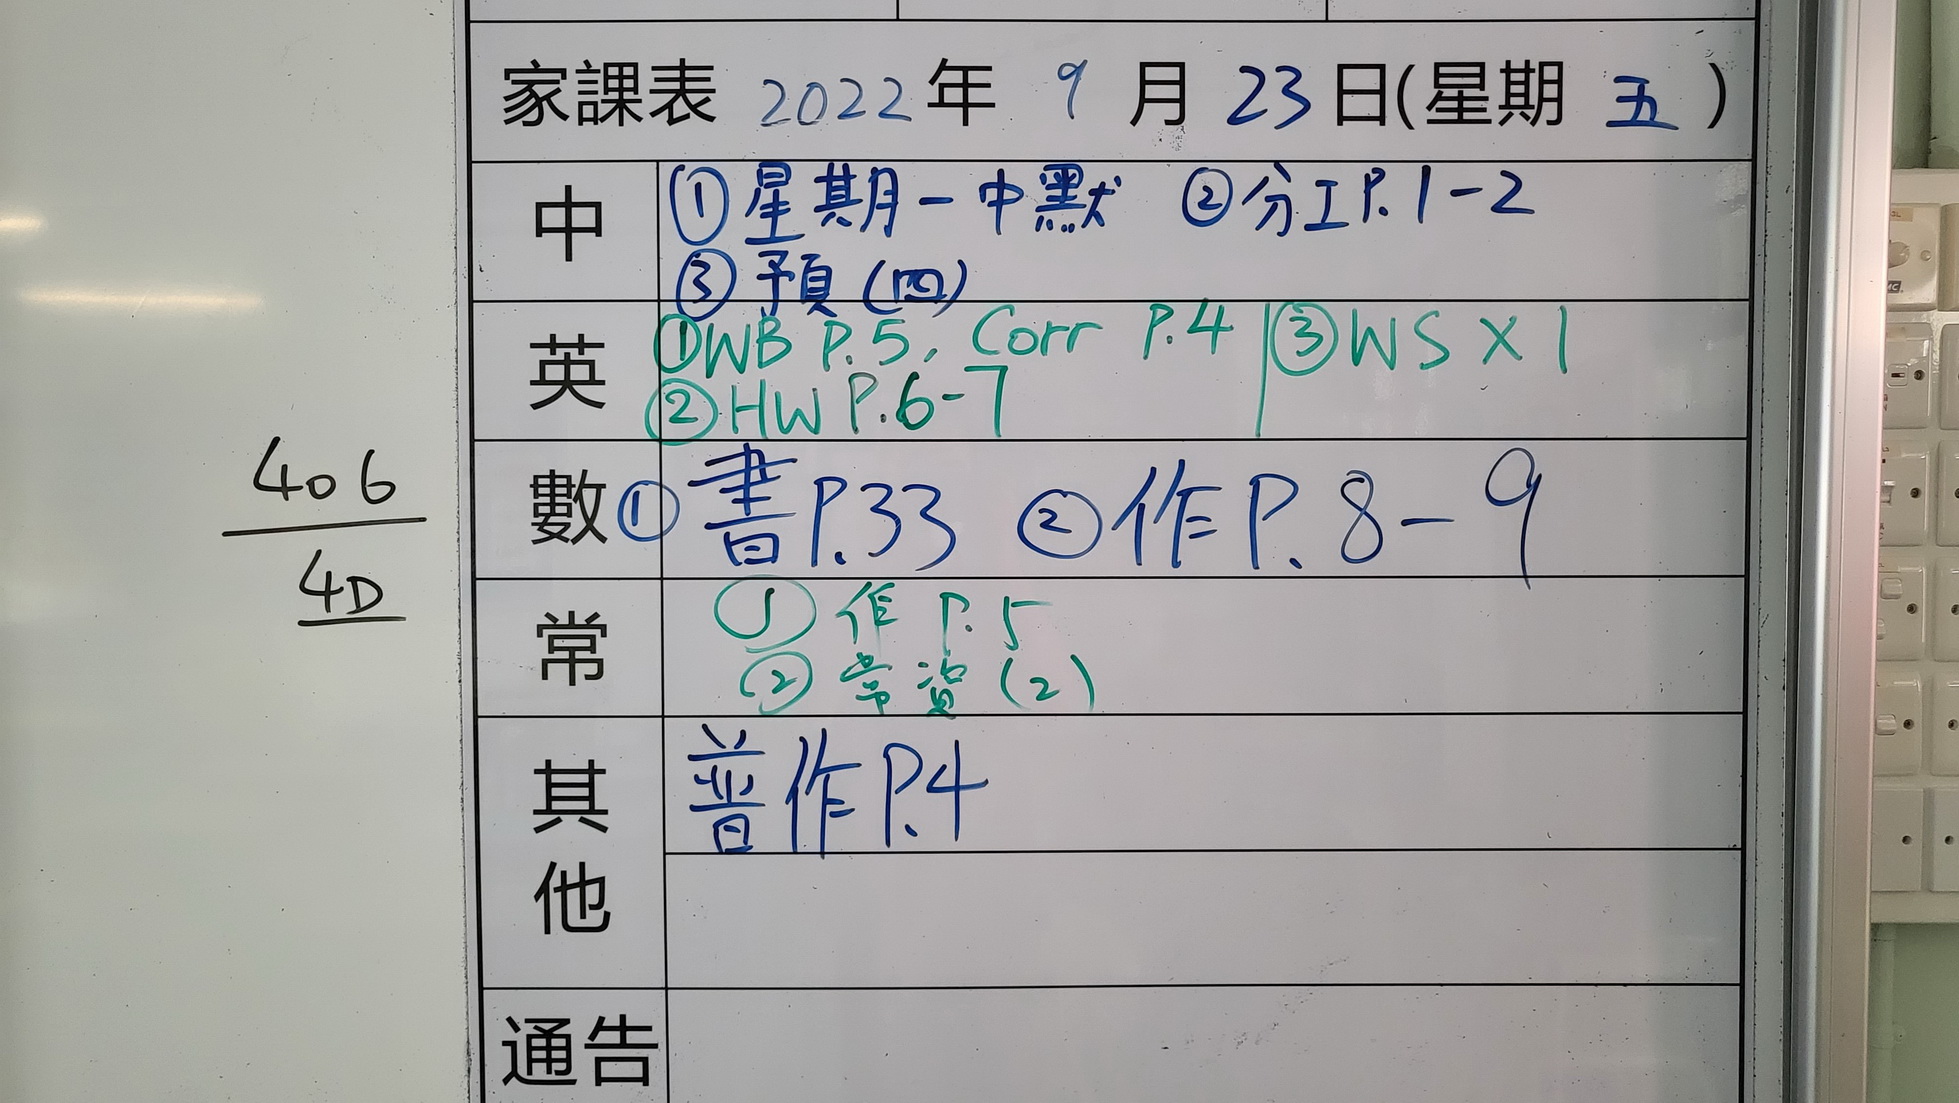 家課表 2022 年 9 月 23 日(星期 五 )
中 ①星期一中默 ②分工P.1-2
③預(四)
英 ①WB P.5, Corr P.4 ③WS X 1
②HW P.6-7
406
4D
數 ①書P.33 ②作P.8-9
常 ①作 P.5
②常資(2)
其他 普作P.4
通告